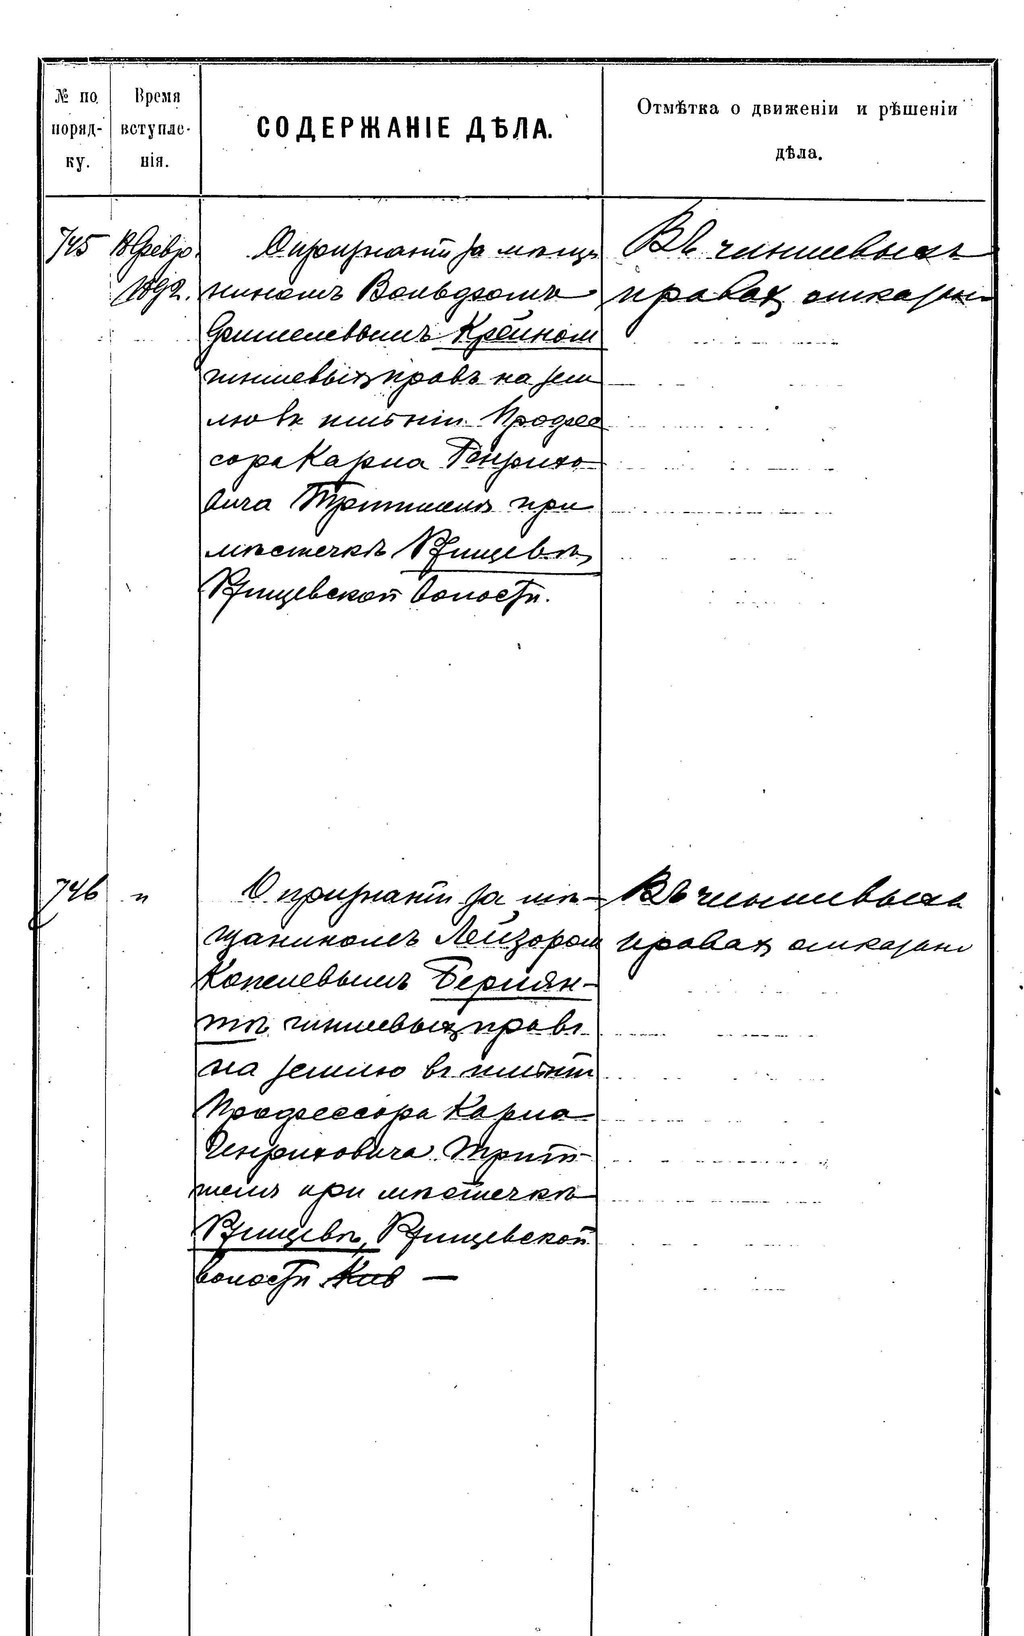 № по
поряд-
ку.
Время
вступле-
нія.
СОДЕРЖАНІЕ ДѢЛА.
Отмѣтка о движеніи и рѣшеніи
дѣла.
745
18 Февр.
1892.
О признаніи за мѣща
ниномъ Вольфомъ
Фишелевымъ Крейном
чиншевыхъ правъ на зем
лю въ имѣніи Профес
сора Карла Генрихо
вича Тритшель при
мѣстечкѣ Ржищевѣ,
Ржищевской волости.
Въ чиншевыхъ
правахъ отказано
746
"
О признаніи за мѣ-
щаниномъ Лейзором
Копелевымъ Бериян-
ты чиншевыхъ правъ
на землю въ имѣніи
Профессора Карла
Генриховича Трит-
шель при мѣстечкѣ
Ржищевѣ, Ржищевской
волости Кив —
Въ чиншевыхъ
правахъ отказано